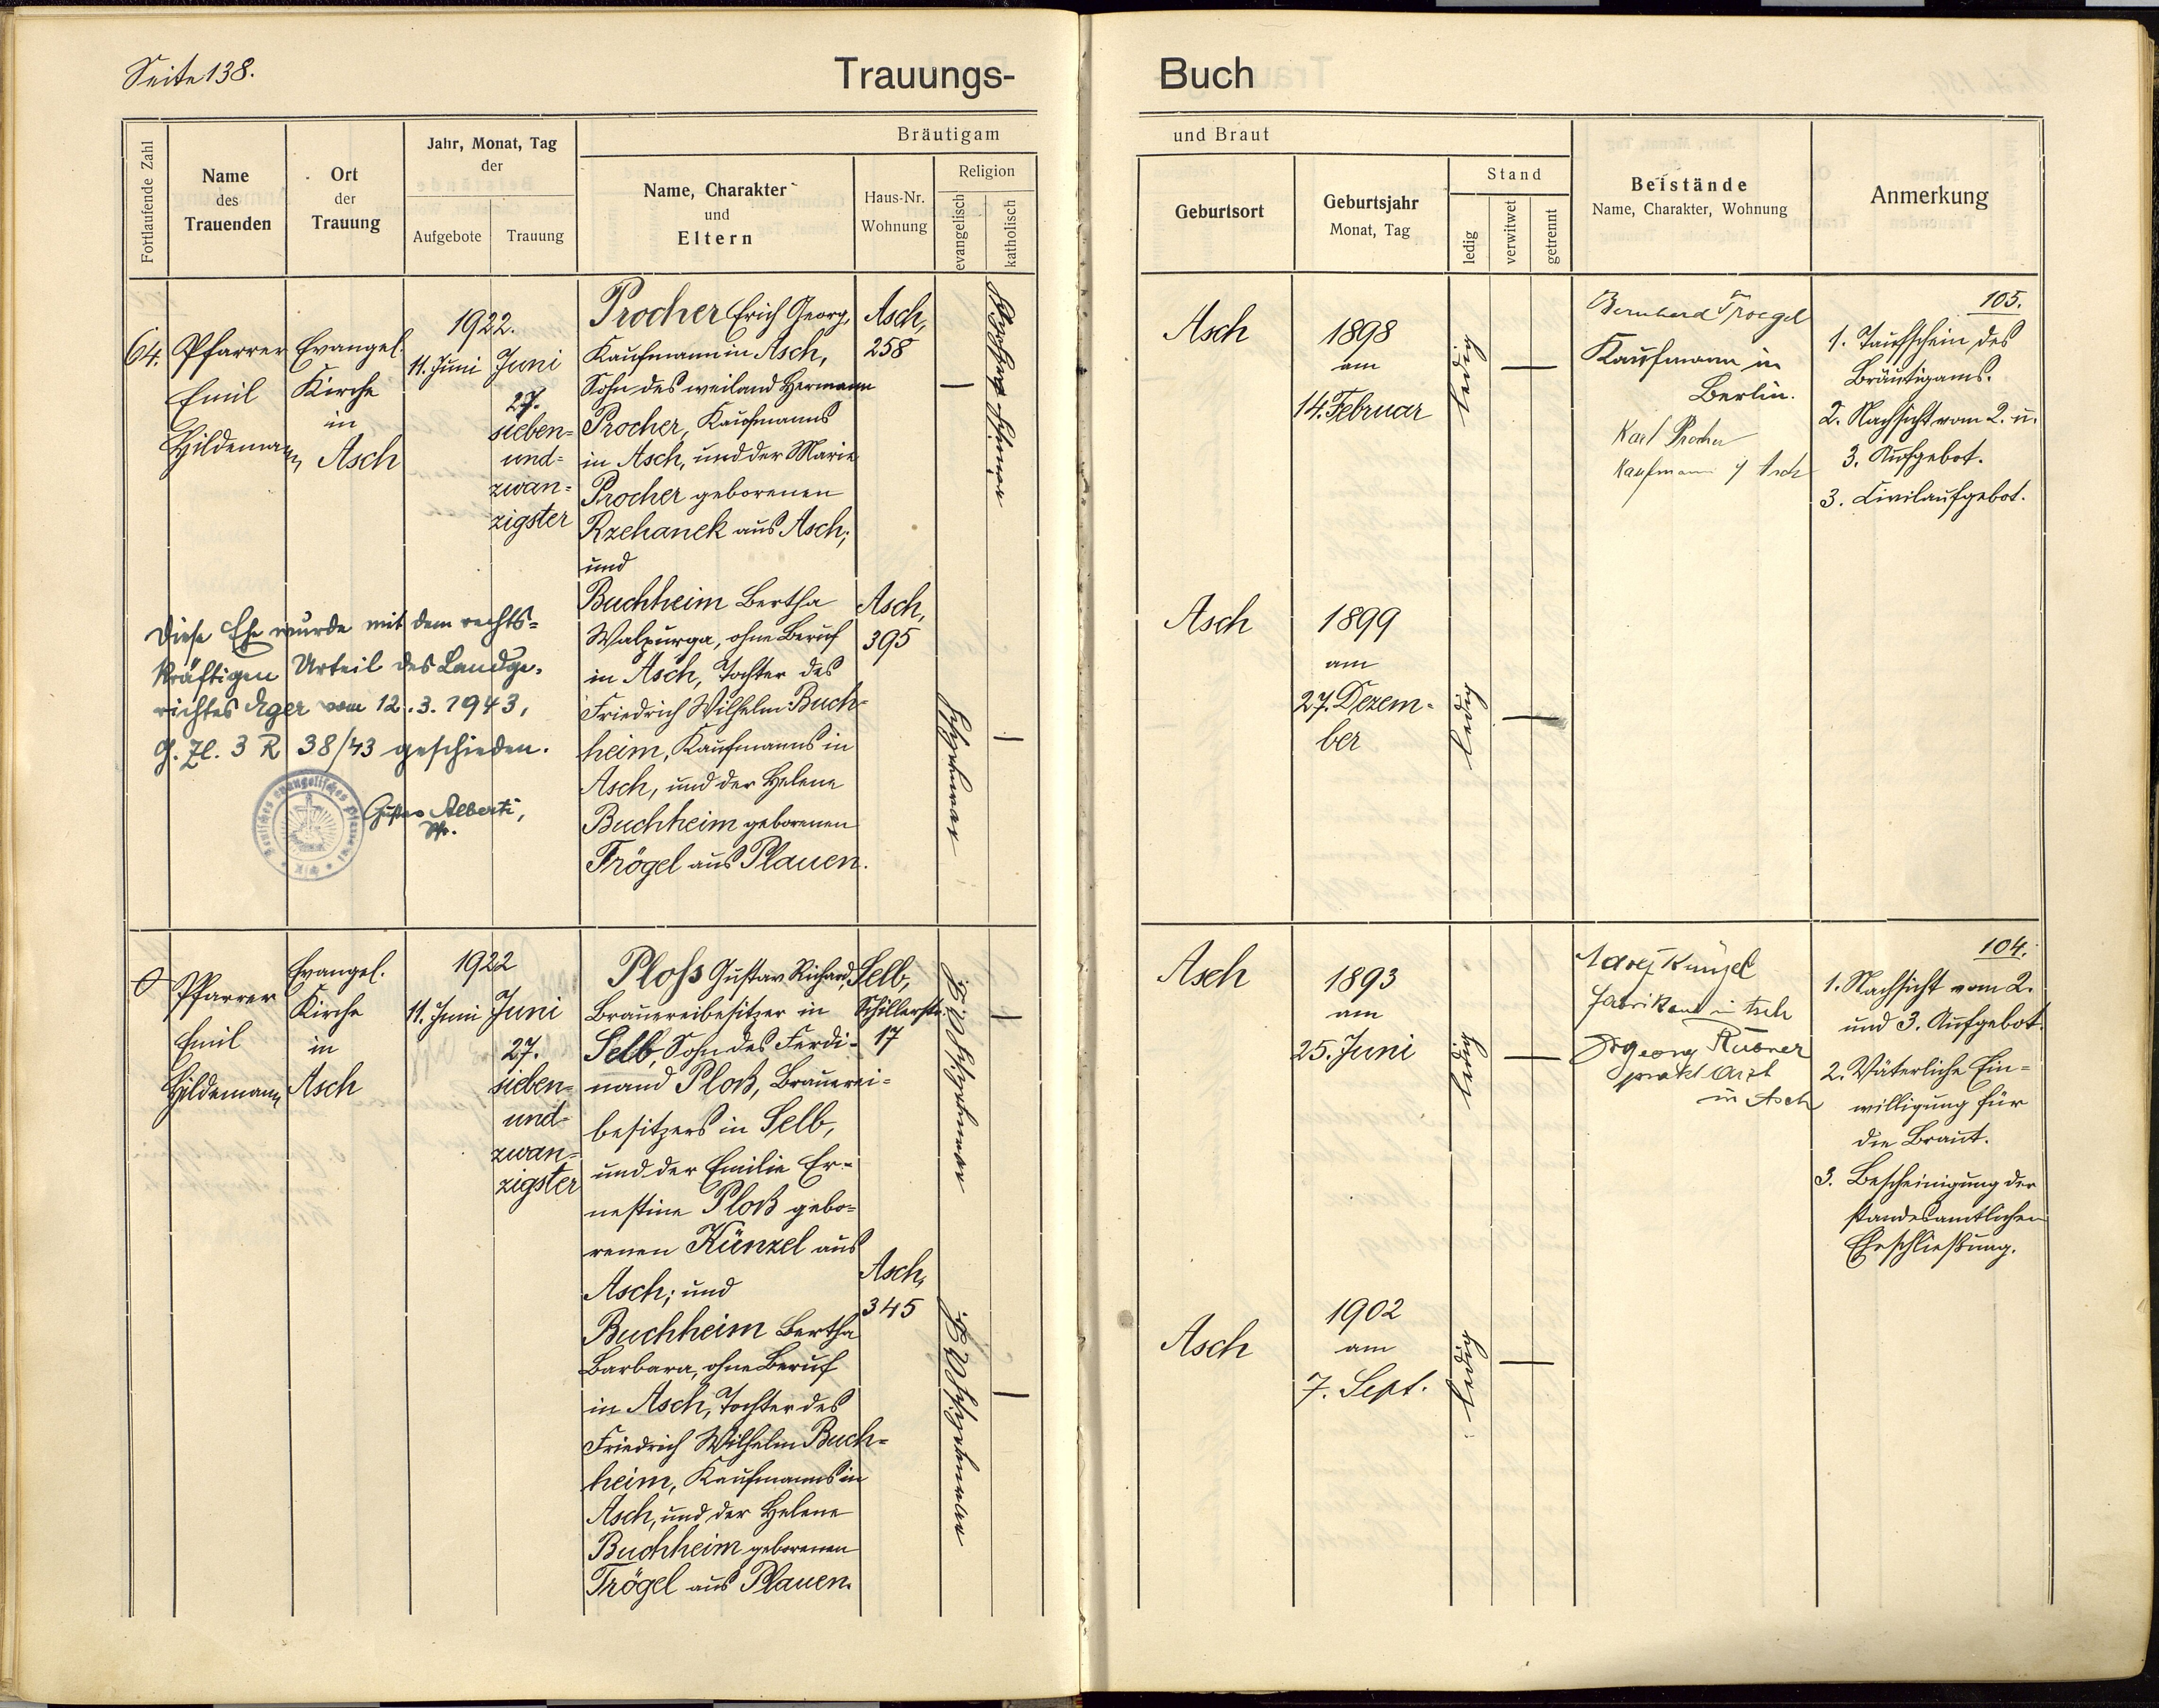 Seite 138.
Trauungs-
Buch
Fortlaufende Zahl
Name
des
Trauenden
Ort
der
Trauung
Jahr, Monat, Tag
der
Aufgebote
Trauung
Bräutigam
Name, Charakter
und
Eltern
Haus-Nr.
Wohnung
Religion
evangelisch
katholisch
und Braut
Geburtsort
Geburtsjahr
Monat, Tag
Stand
ledig
verwitwet
getrennt
Beistände
Name, Charakter, Wohnung
Anmerkung
64.
Pfarrer
Emil
Hildemann
Evangel.
Kirche
in
Asch
1922.
11. Juni
Juni
27.
sieben=
und=
zwan=
zigster
Procher Erich Georg,
Kaufmann in Asch,
Sohn des weiland Hermann
Procher, Kaufmanns
in Asch, und der Marie
Procher geborenen
Rzehanek aus Asch;
und
Buchheim Bertha
Walpurga, ohne Beruf
in Asch, Tochter des
Friedrich Wilhelm Buch=
heim, Kaufmanns in
Asch, und der Helene
Buchheim geborenen
Trögel aus Plauen.
Asch,
258
Asch,
395
Diese Ehe wurde mit dem rechts=
kräftigen Urteil des Landge=
richtes Eger vom 12.3.1943,
G. Zl. 3 R 38/43 geschieden.
Gustav Alberti,
Pfr.
Asch
1898
am
14. Februar
ledig
Bernhard Troegel
Kaufmann in
Berlin.
Karl Procher
Kaufmann in Asch
105.
1. Taufschein des
Bräutigams.
2. Nachsicht vom 2. u.
3. Aufgebot.
3. Civilaufgebot.
Asch
1899
am
27. Dezem=
ber
ledig
0
Pfarrer
Emil
Hildemann
Evangel.
Kirche
in
Asch
1922
11. Juni
Juni
27.
sieben=
und=
zwan=
zigster
Ploß Gustav Richard,
Brauereibesitzer in
Selb, Sohn des Ferdi=
nand Ploß, Brauerei=
besitzers in Selb,
und der Emilie Er=
nestine Ploß gebo=
renen Künzel aus
Asch; und
Buchheim Bertha
Barbara, ohne Beruf
in Asch, Tochter des
Friedrich Wilhelm Buch=
heim, Kaufmanns in
Asch, und der Helene
Buchheim geborenen
Trögel aus Plauen.
Selb,
Schillerstr.
17
Asch,
345
Asch
1893
am
25. Juni
ledig
Künzel
Fabrikant in Asch
Dr Georg Rubner
prakt Arzt
in Asch
104.
1. Nachsicht vom 2.
und 3. Aufgebot.
2. Väterliche Ein=
willigung für
die Braut.
3. Bescheinigung der
standesamtlichen
Eheschließung.
Asch
1902
am
7. Sept.
ledig